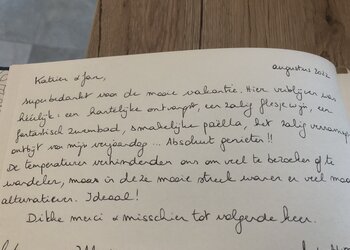 augustus 2022
Katrien & Jan,
superbedankt voor de mooie vakantie. Hier verblijven was
heerlijk: een hartelijke ontvangst, een zalig flesje wijn, een
fantastisch zwembad, smakelijke paëlla, het zalig
ontbijt van mijn verjaardag ... Absoluut genieten!!
De temperaturen verhinderden ons om veel te bezoeken of te
wandelen, maar in deze mooie streek waren er veel mooie
alternatieven. Ideaal!
Dikke merci & misschien tot volgende keer.